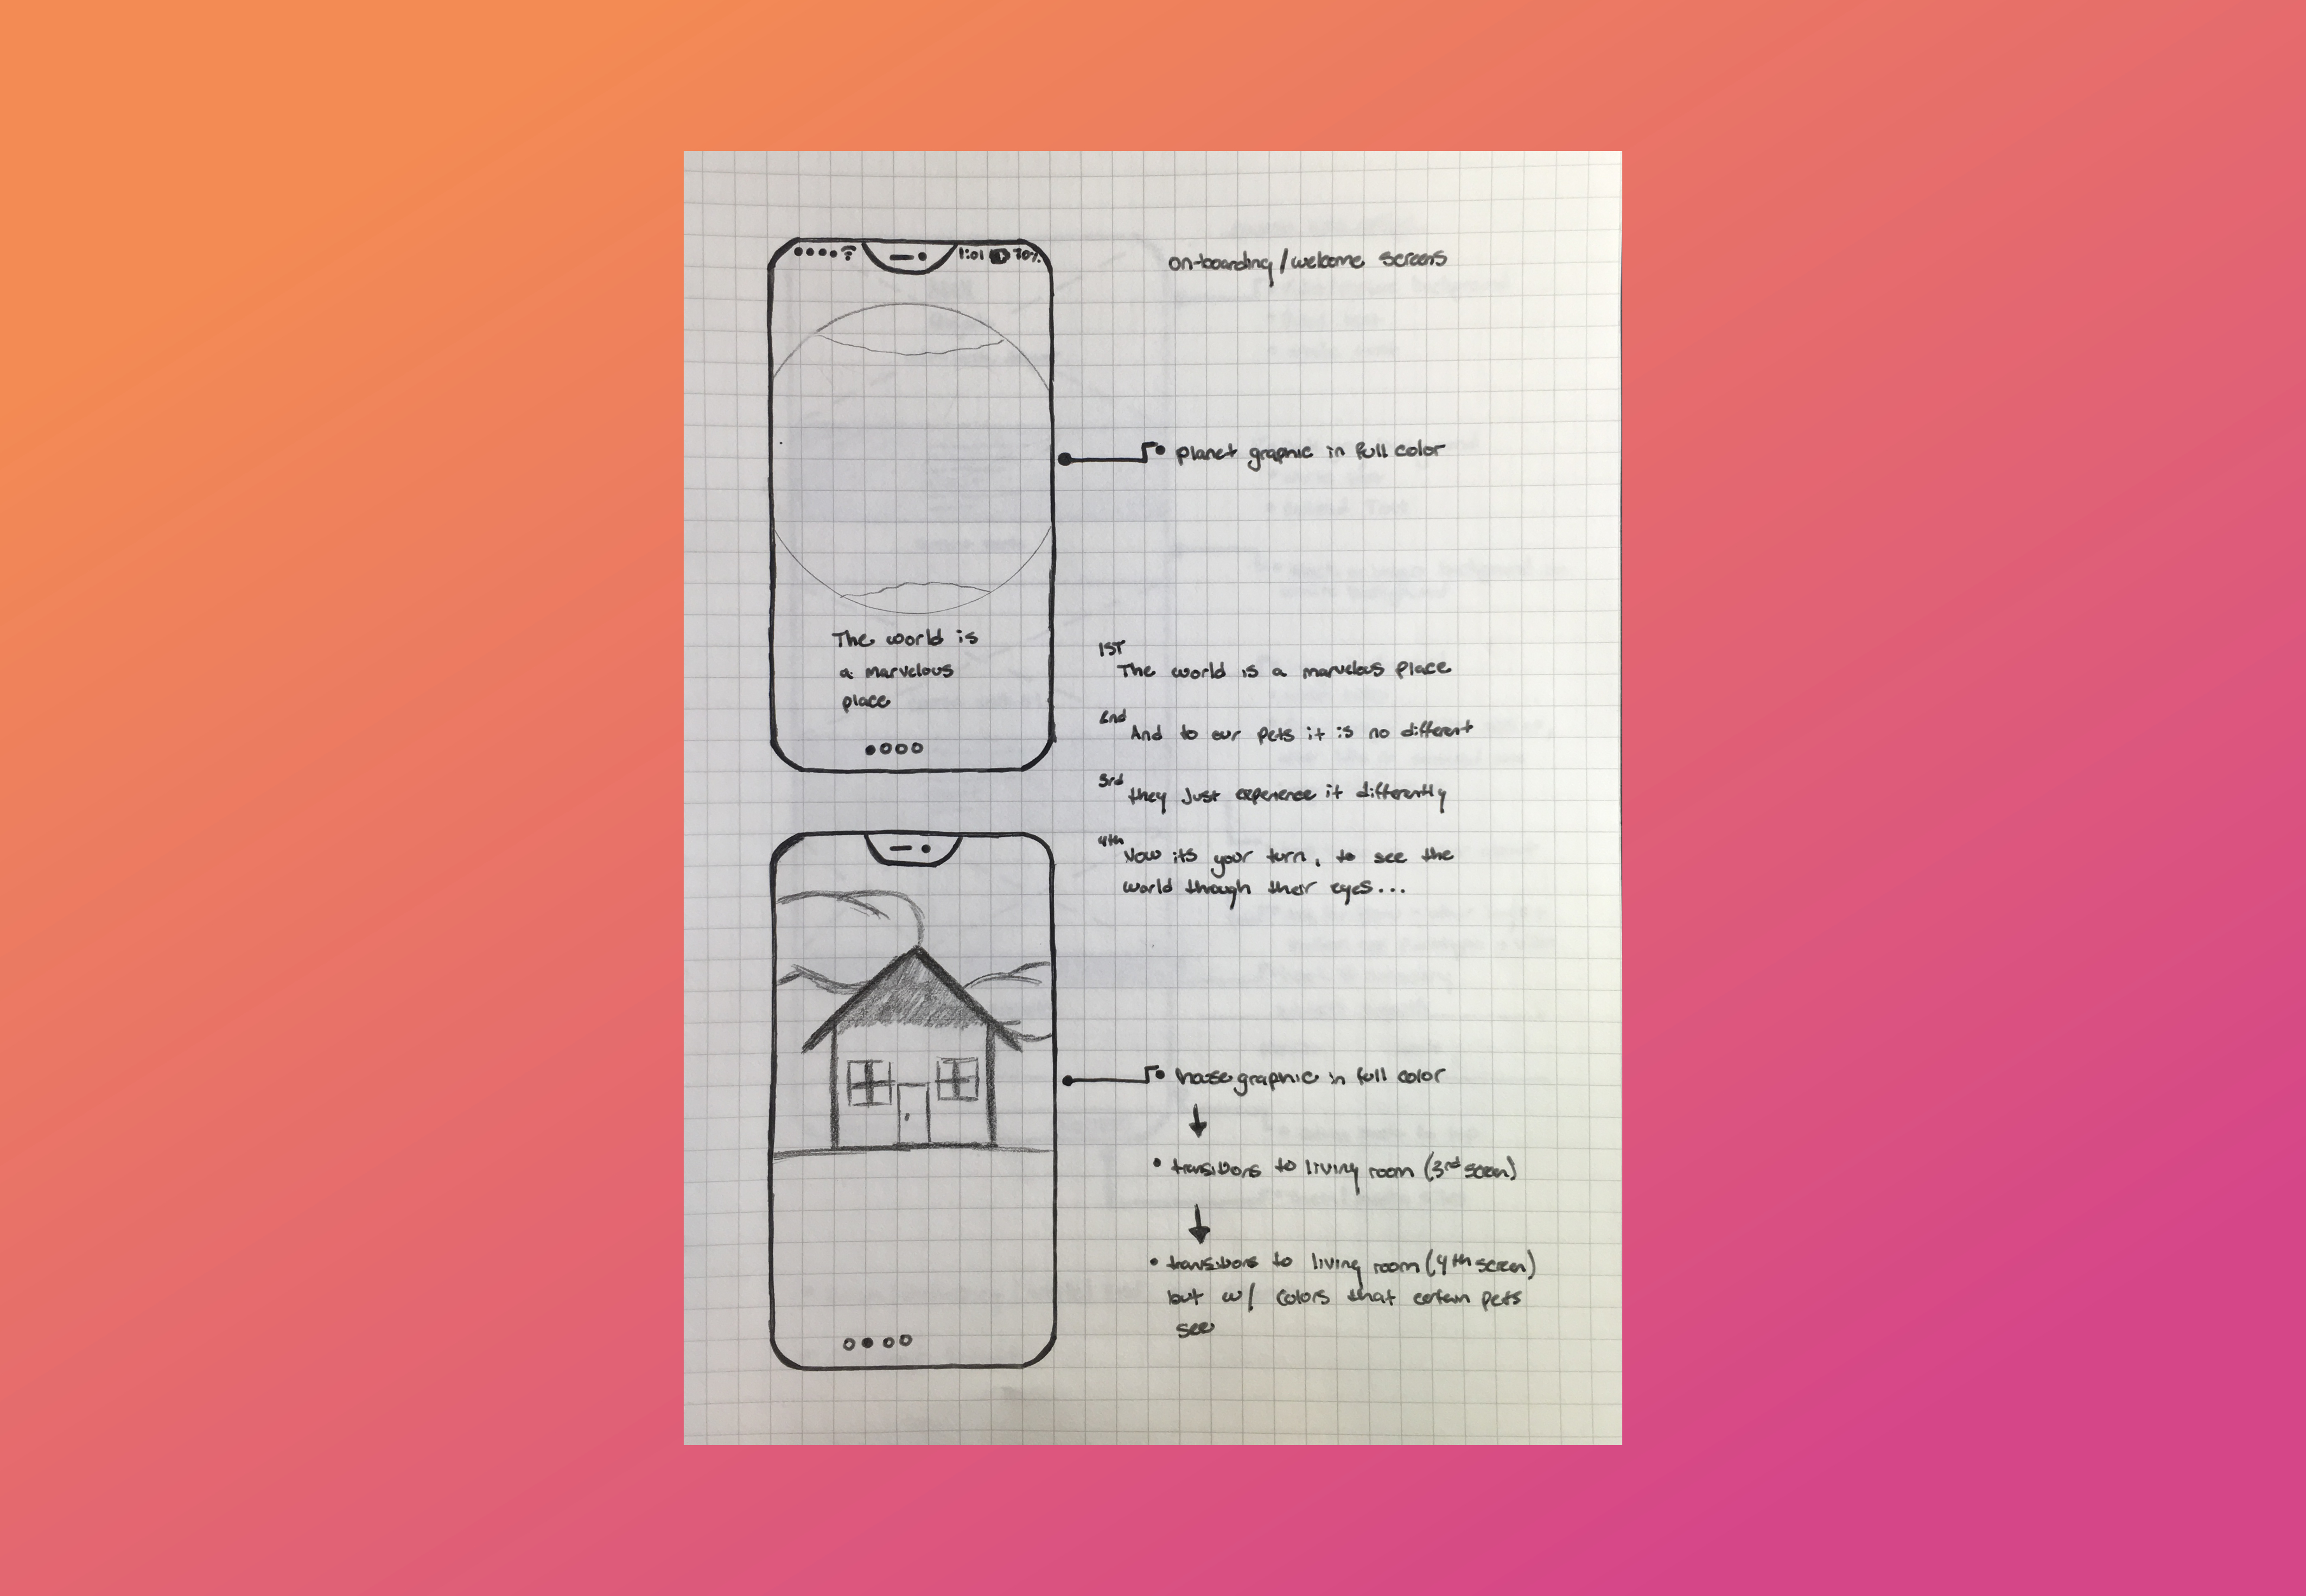 1:01 70%
on-boarding/welcome screens
planet graphic in full color
The world is
a marvelous
place
1ST
The world is a marvelous place
2nd
And to our pets it is no different
3rd
they just experience it differently
4th
Now its your turn, to see the
world through their eyes...
house graphic in full color
• transitions to living room (3rd screen)
• transitions to living room (4th screen)
but w/ colors that certain pets
see